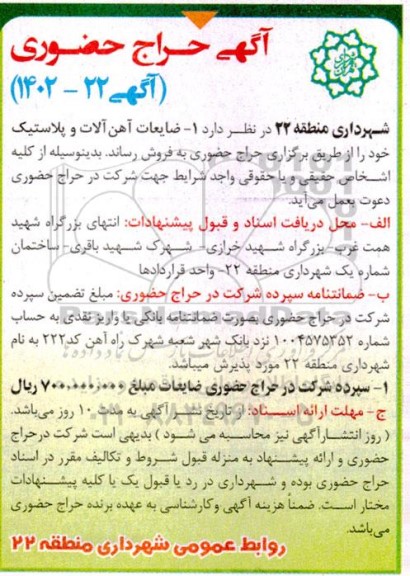 آگهی حراج حضوری
(آگهی ۲۲ - ۱۴۰۲)
شهرداری منطقه ۲۲ در نظر دارد ۱- ضایعات آهن آلات و پلاستیک
خود را از طریق برگزاری حراج حضوری به فروش رساند. بدینوسیله از کلیه
اشخاص حقیقی و یا حقوقی واجد شرایط جهت شرکت در حراج حضوری
دعوت بعمل می‌آید.
الف- محل دریافت اسناد و قبول پیشنهادات: انتهای بزرگراه شهید
همت غرب- بزرگراه شهید خرازی- شهرک شهید باقری- ساختمان
شماره یک شهرداری منطقه ۲۲- واحد قراردادها
ب- ضمانتنامه سپرده شرکت در حراج حضوری: مبلغ تضمین سپرده
شرکت در حراج حضوری بصورت ضمانتنامه بانکی یا واریز نقدی به حساب
شماره ۱۰۰۴۵۷۵۳۵۲ نزد بانک شهر شعبه شهرک راه آهن کد۲۲۲ به نام
شهرداری منطقه ۲۲ مورد پذیرش میباشد.
۱- سپرده شرکت در حراج حضوری ضایعات مبلغ ۷۰۰.۰۰۰.۰۰۰ ریال
ج- مهلت ارائه اسناد: از تاریخ نشر آگهی به مدت ۱۰ روز می‌باشد.
( روز انتشار آگهی نیز محاسبه می شود ) بدیهی است شرکت در حراج
حضوری و ارائه پیشنهاد به منزله قبول شروط و تکالیف مقرر در اسناد
حراج حضوری بوده و شهرداری در رد یا قبول یک یا کلیه پیشنهادات
مختار است. ضمناً هزینه آگهی وکارشناسی به عهده برنده حراج حضوری
می‌باشد.
روابط عمومی شهرداری منطقه ۲۲